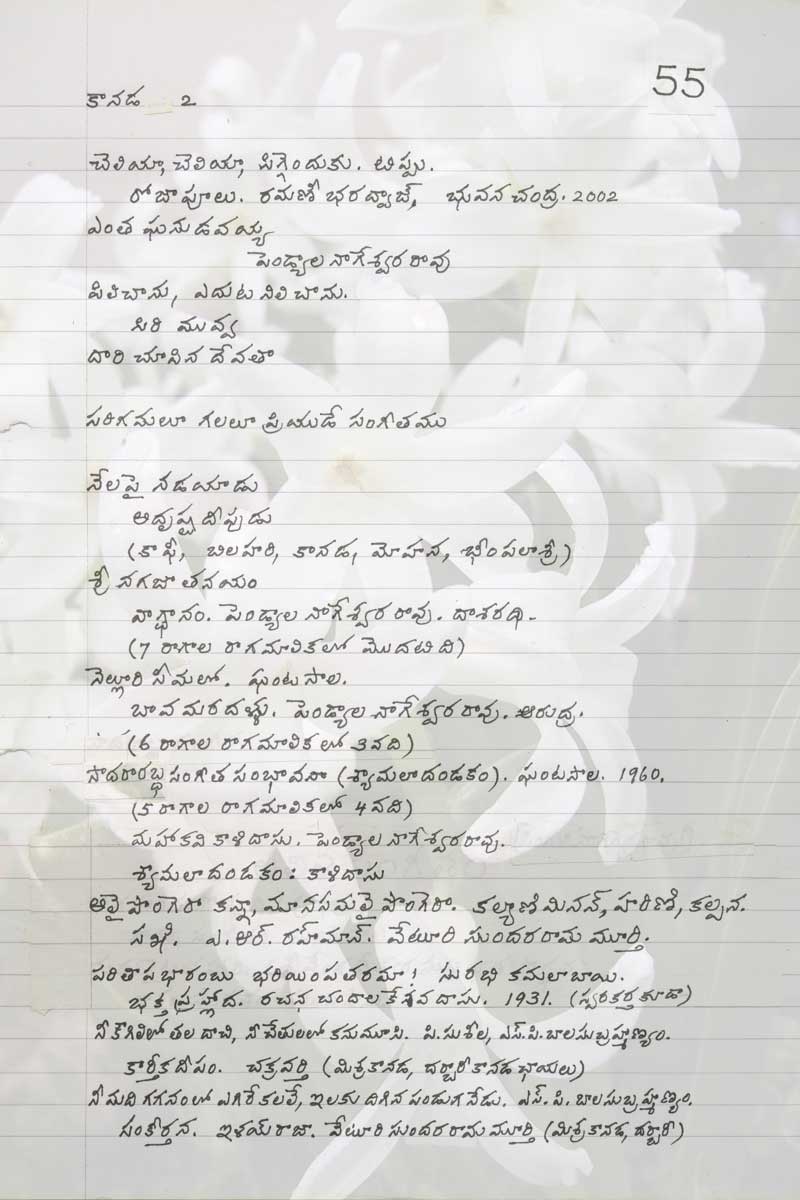 55
కానడ 2
చెలియా, చెలియా, సిగ్గెందుకు. టిప్పు.
రోజాపూలు. రమణీ భరద్వాజ్, భువనచంద్ర. 2002
ఎంత ఘనుడవయ్య
పెండ్యాల నాగేశ్వరరావు
పిలిచాను, ఎదుట నిలిచాను.
సిరి మువ్వ
దారి చూపిన దేవతా
సరిగమలూ గలలూ ప్రియుడే సంగీతము
నేలపై నడయాడు
అదృష్ట దీపుడు
(కాఫీ, బిలహరి, కానడ, మోహన, భీంపలాశ్రీ)
శ్రీ నగజా తనయం
వాగ్దానం. పెండ్యాల నాగేశ్వరరావు. దాశరథి.
(7 రాగాల రాగమాలికలో మొదటిది)
నెల్లూరి సీమలో. ఘంటసాల.
బావమరదళ్ళు. పెండ్యాల నాగేశ్వరరావు. ఆరుద్ర.
(6 రాగాల రాగమాలికలో 3వది)
సాదరారబ్ధ సంగీత సంభావనా (శ్యామలాదండకం). ఘంటసాల. 1960.
(5 రాగాల రాగమాలికలో 4వది)
మహాకవి కాళిదాసు. పెండ్యాల నాగేశ్వరరావు.
శ్యామలాదండకం: కాళిదాసు
అలై పొంగెరా కన్నా, మానసమలై పొంగెరా. కల్యాణి మినన్, హరిణి, కల్పన.
సఖి. ఎ.ఆర్. రహ్మాన్. వేటూరి సుందరరామ మూర్తి.
పరితాప భారంబు భరియింప తరమా! సురభి కమలాబాయి.
భక్త ప్రహ్లాద. రచన చందాల కేశవదాసు. 1931. (స్వరకర్త కూడా)
నీ కౌగిలిలో తల దాచి, నీ చేతులలో కనుమూసి. పి.సుశీల, ఎస్.పి.బాలసుబ్రహ్మణ్యం.
కార్తీకదీపం. చక్రవర్తి (మిశ్రకానడ, దర్బారీకానడ ఛాయలు)
నీ మది గగనంలో ఎగిరే కలలే, ఇలకు దిగిన పండుగ నేడు. ఎస్. పి. బాలసుబ్రహ్మణ్యం.
సంకీర్తన. ఇళయ్‌రాజా. వేటూరి సుందరరామ మూర్తి (మిశ్రకానడ, దర్బారీ)